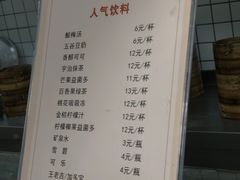 人气饮料
酸梅汤 6元/杯
五谷豆奶 6元/杯
香醇可可 12元/杯
宇治抹茶 12元/杯
芒果益菌多 12元/杯
百香果绿茶 13元/杯
桃花吸吸冻 12元/杯
金桔柠檬汁 12元/杯
柠檬椰果益菌多 12元/杯
矿泉水 3元/瓶
雪碧 4元/瓶
可乐 4元/瓶
王老吉/加多宝